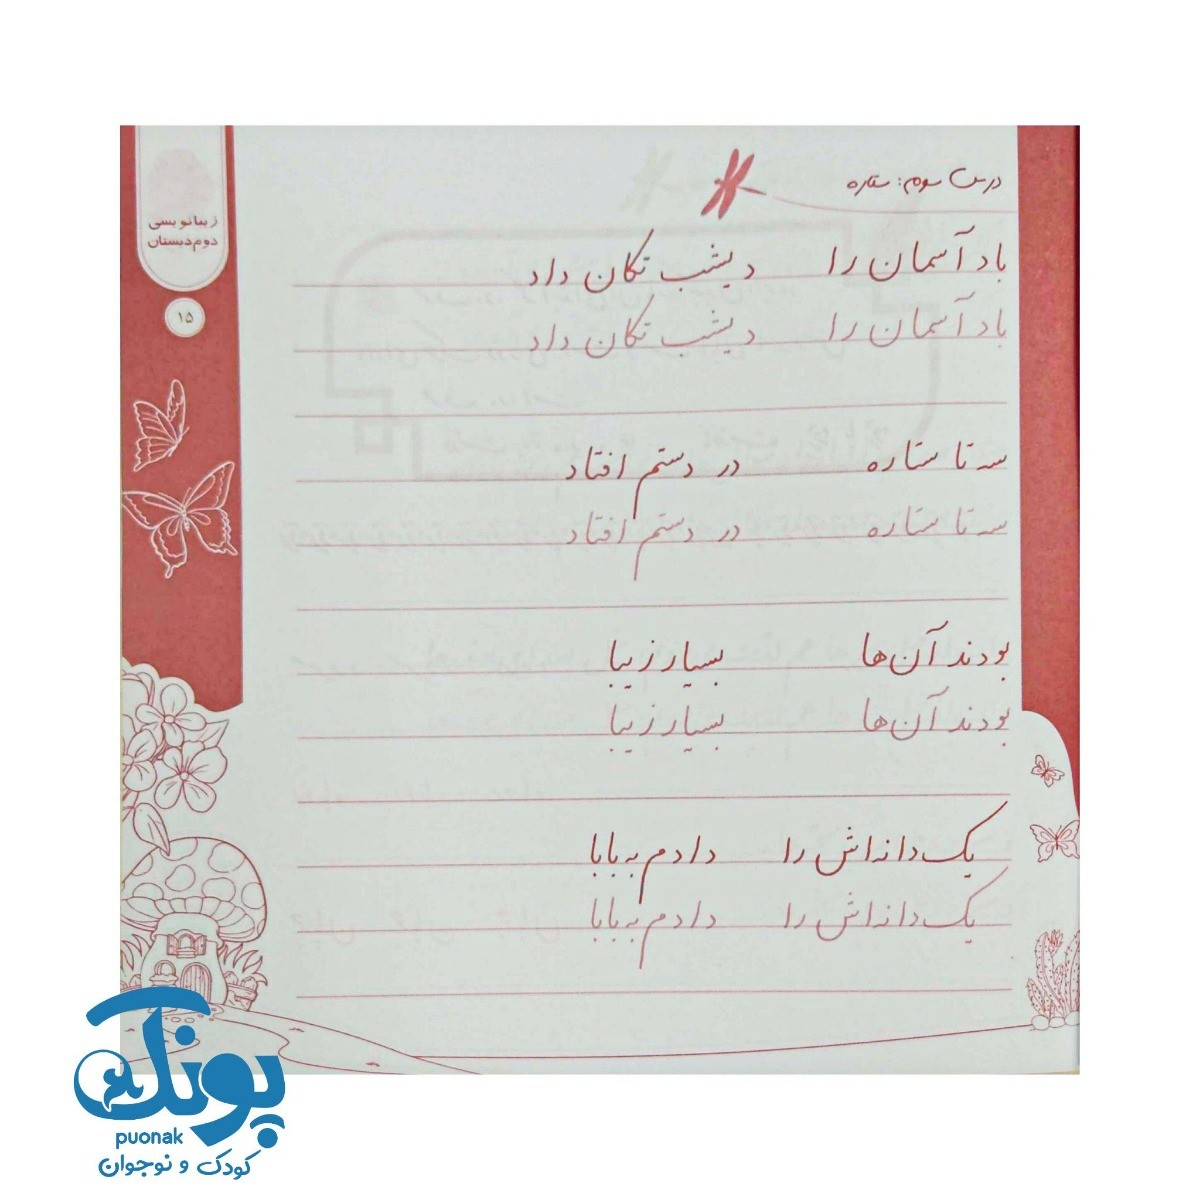 درس سوم: ستاره
زیبانویسی
دوم دبستان
۱۵
باد آسمان را دیشب تکان داد
باد آسمان را دیشب تکان داد
سه تا ستاره در دستم افتاد
سه تا ستاره در دستم افتاد
بودند آن‌ها بسیار زیبا
بودند آن‌ها بسیار زیبا
یک دانه‌اش را دادم به بابا
یک دانه‌اش را دادم به بابا
پونک
puonak
کودک و نوجوان